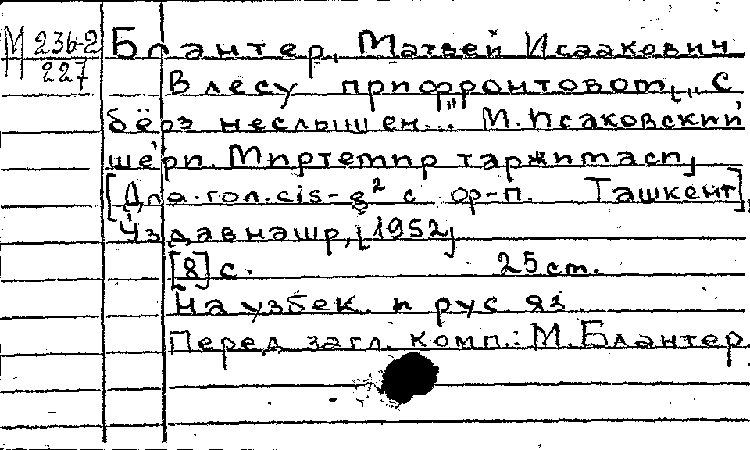 М 236-2
227
Блантер, Матвей Исаакович
В лесу прифронтовом, „С
берёз неслышен..." М. Исаковский
шеърп. Миртемир таржимаси,
[Для гол. cis-g² с ор-п. Ташкент],
Ўздавнашр, [1952]
[8] с. 25 см.
На узбек. и рус. яз.
Перед загл. комп.: М. Блантер